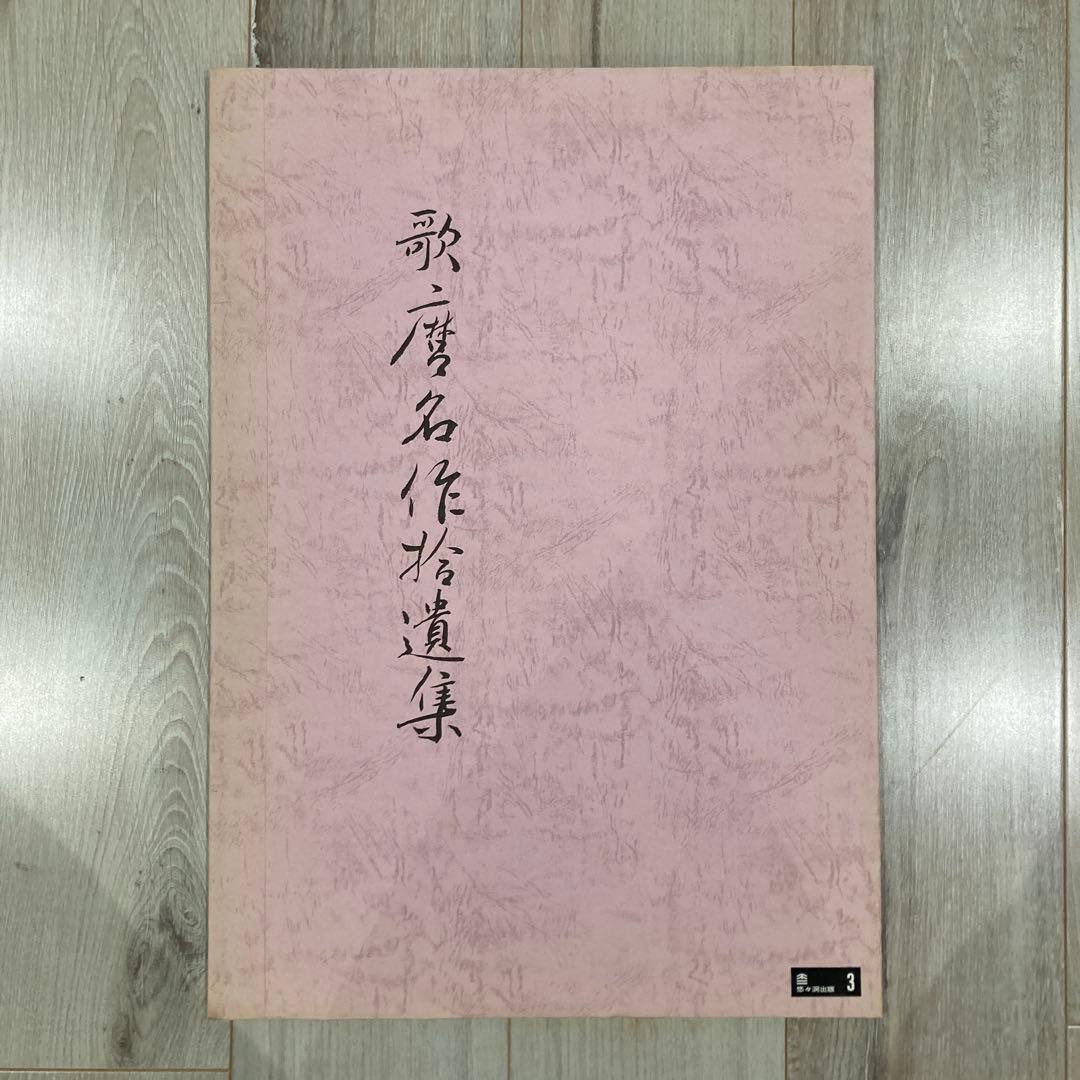 歌麿名作拾遺集
悠々洞出版
3